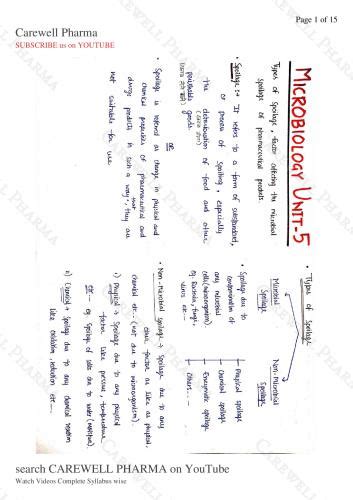 Page 1 of 15
Carewell Pharma
SUBSCRIBE us on YOUTUBE
MICROBIOLOGY UNIT-5
Types of spoilage, factor affecting the microbial
spoilage of pharmaceutical products.
• Spoilage :- It refers to a form of
or process of spoiling, especially
the deterioration of food and other
perishable goods.
OR
• Spoilage is referred as change in physical and
chemical properties of pharmaceutical and
drugs products in such a way that, they are
not suitable for use.
• Types of Spoilage
Microbial Spoilage
Non-Microbial Spoilage
• Spoilage due to
contamination of
any microbial
cells (microorganism).
eg. Bacteria, fungi,
virus etc-
Physical spoilage
Chemical spoilage
Enzymatic spoilage
Others...-
• Non-Microbial spoilage → spoilage due to any
other factor like as physical,
chemical etc- (not due to microorganism).
i) Physical → Spoilage due to any physical
factor like pressure, temperature
etc- eg. Spoilage of salts due to water (moisture).
ii) Chemical → Spoilage due to any chemical reaction
like oxidation, reduction etc-
search CAREWELL PHARMA on YouTube
Watch Videos Complete Syllabus wise